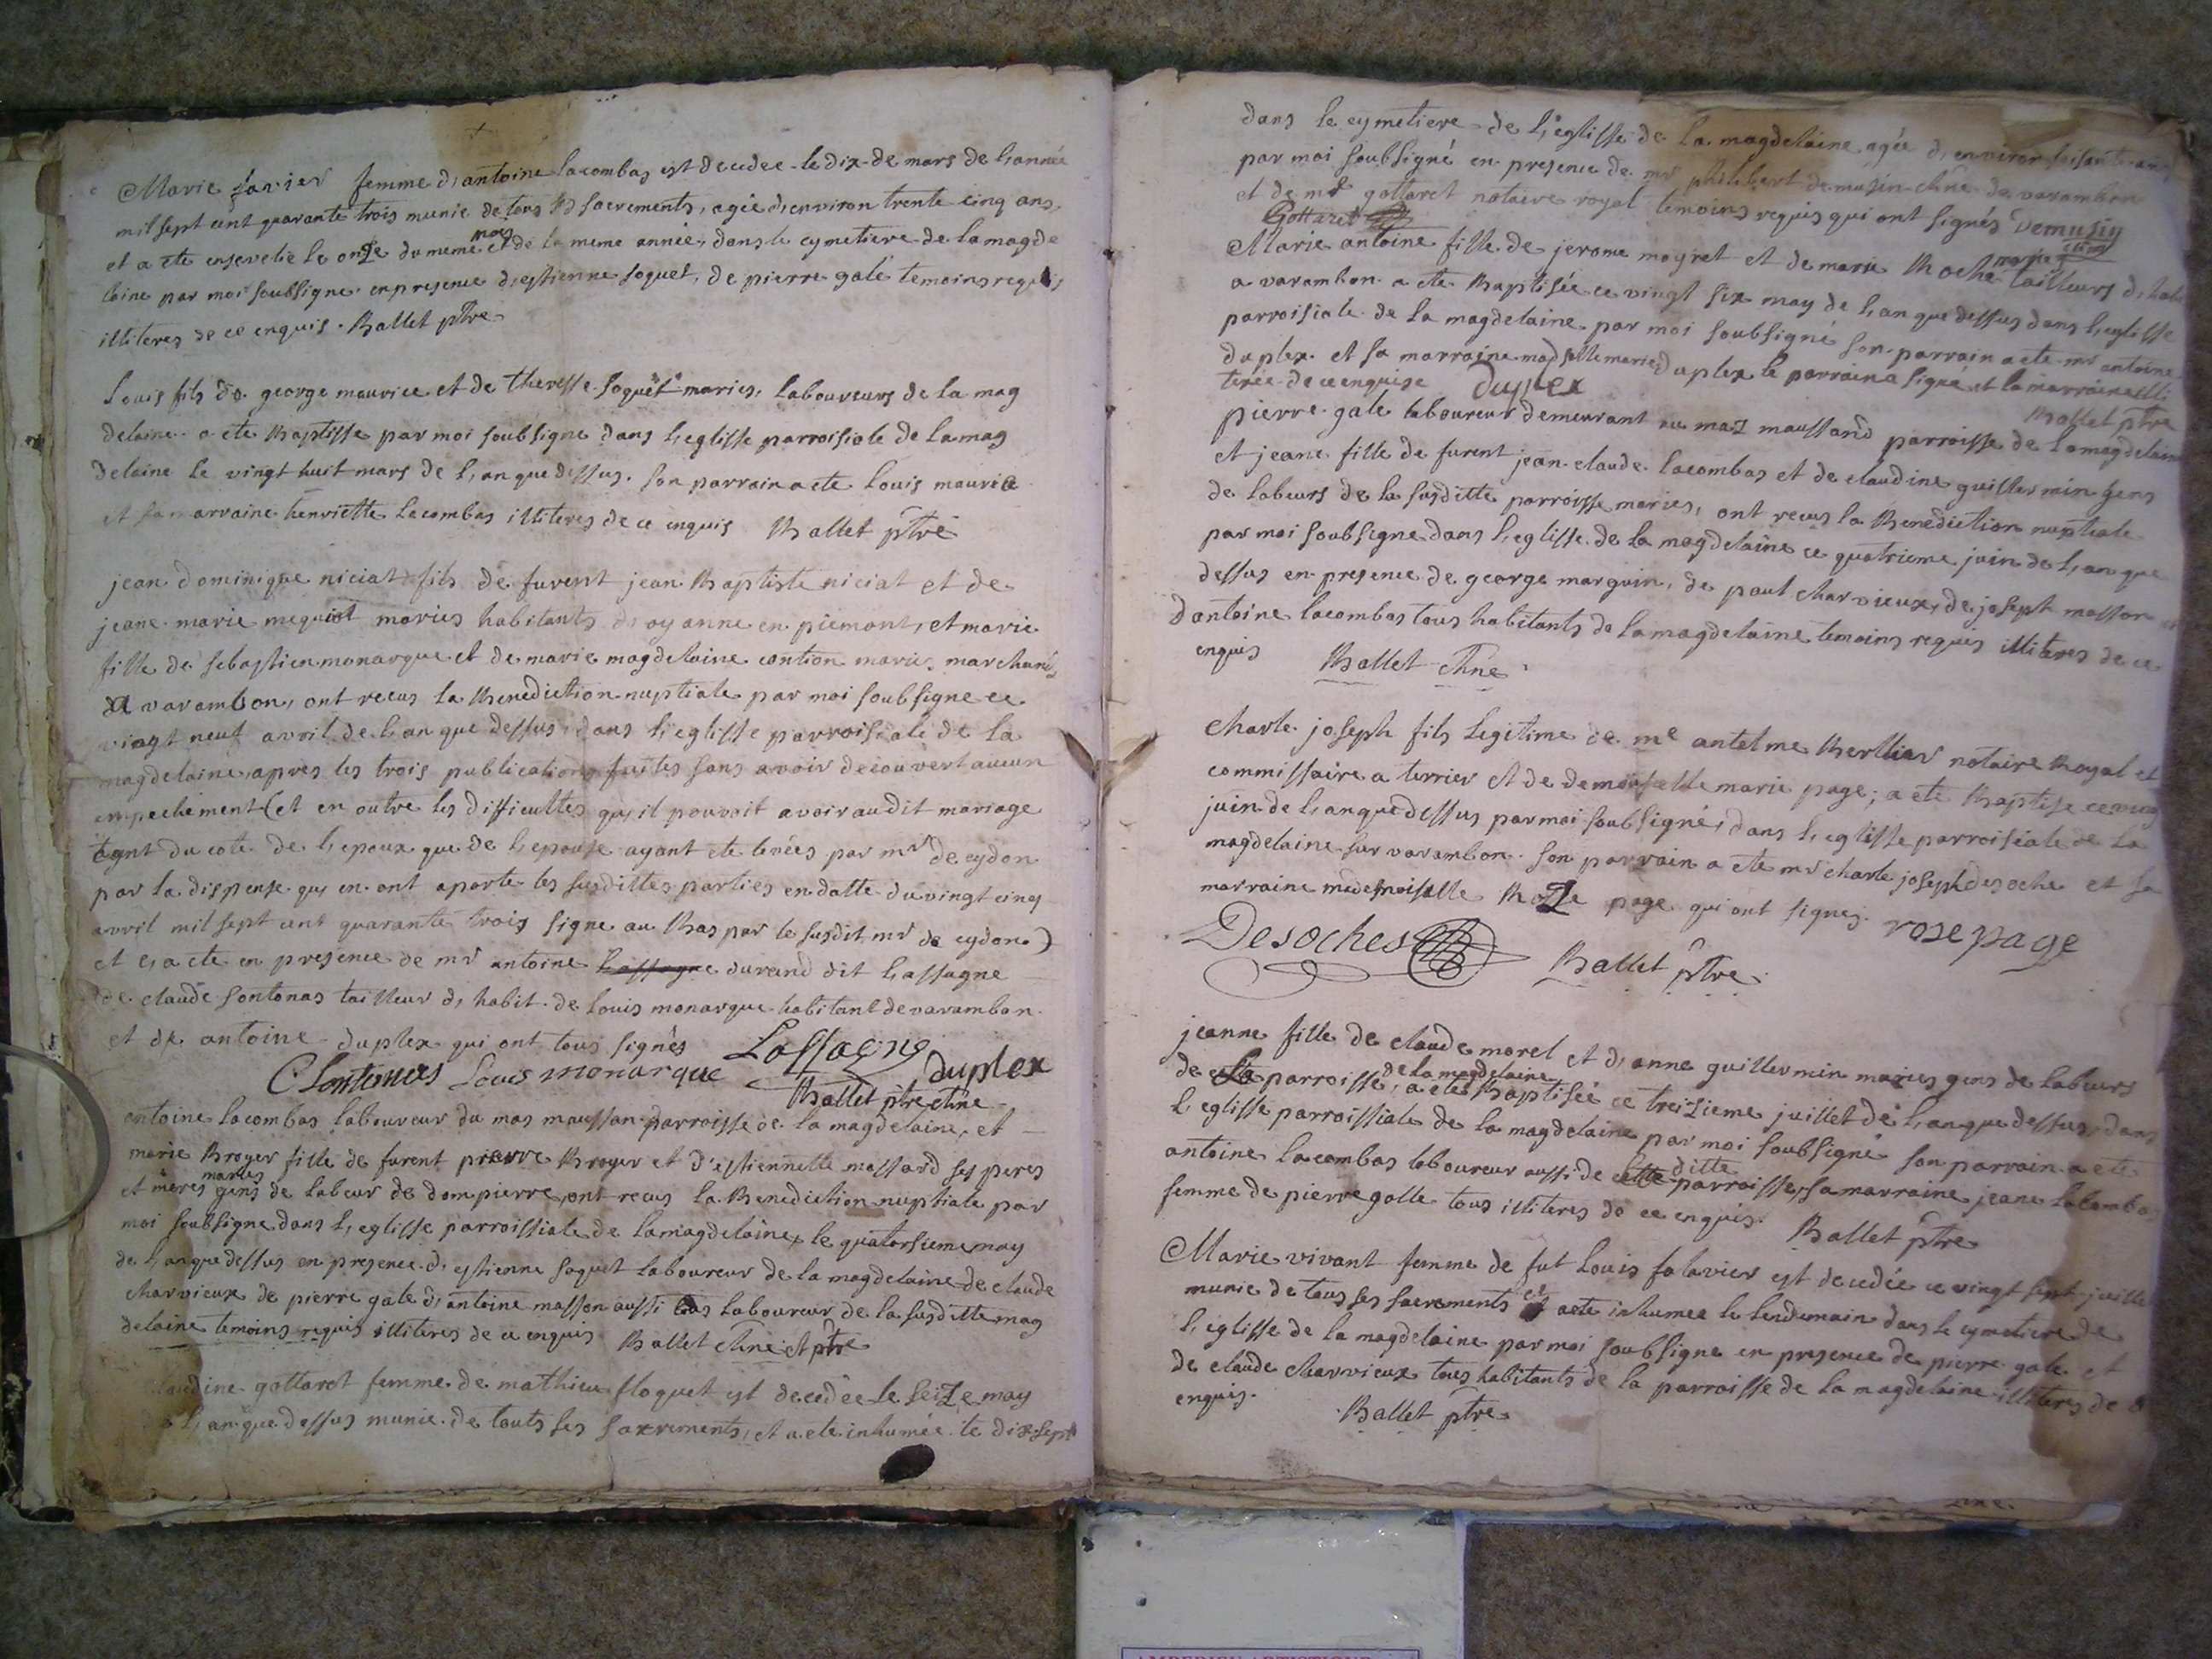 Marie favier femme d,antoine lacombas est decedee le dix de mars de l,année
mil sept cent quarante trois munie de tous sacrements, agée d,environ trente cinq ans,
et a ete ensevelie le onze du meme mois et de la meme année, dans le cymetiere de la magde
laine par moi soubsigne en presence d,estienne soquet, de pierre galé temoins requis
illiteres de ce enquis. Ballet ptre
Louis fils de george maurice et de theresse soquet maries, laboureurs de la mag
delaine a ete Baptisse par moi soubsigne dans l,eglisse parroisiale de la mag
delaine le vingt huit mars de l,an que dessus. son parrain a ete Louis maurice
et sa marraine henriette Lacombas illiteres de ce enquis Ballet ptre
jean dominique niciat fils de furent jean Baptiste niciat et de
jeane marie meguiot maries habitants d,oyanne en piemont, et marie
fille de sebastien monarque et de marie magdelaine contion maries marchands
a varambon, ont recus la Benediction nuptiale par moi soubsigne ce
vingt neuf avril de l,an que dessus, dans l,eglisse parroisiale de la
magdelaine, apres les trois publications faites sans avoir decouvert aucun
empechement (et en outre les difficultes qu,il pouvoit avoir audit mariage
tant du cote de l,epoux que de l,epouse ayant ete levées par mr de eydon
par la dispense qu,en ont aporte les susdittes parties en datte du vingt cinq
avril mil sept cent quarante trois signe au Bas par le susdit mr de eydon)
et c,a ete en presence de mr antoine Lassagne durand dit Lassagne
de claude sontonas tailleur d,habit de Louis monarque habitant de varambon
et de antoine duplex qui ont tous signés Lassagne
C Sontonas Louis monarque duplex
Ballet ptre
antoine lacombas laboureur du mas maussan parroisse de la magdelaine, et
marie Broyer fille de furent pierre Broyer et d'estiennette massard ses peres
et meres maries gens de labeur de dompierre, ont recus la Benediction nuptiale par
moi soubsigne dans l,eglisse parroissiale de la magdelaine, le quatorsieme may
de l,an que dessus en presence d,estienne soquet laboureur de la magdelaine de claude
charvieux de pierre gale d,antoine masson aussi tous laboureur de la susditte mag
delaine temoins requis illiteres de ce enquis Ballet et ptre
claudine gottaret femme de mathieu floquet est decedée le seize may
l,an que dessus munie de touts ses sacrements, et a ete inhumée le dix sept
dans le cymetiere de l,eglisse de la magdelaine agée d,environ soisante ans
par moi soubsigné en presence de mr philibert demusin de varambon
et de mr gottaret notaire royal temoins requis qui ont signés Demusin
Gottaret
Marie antoine fille de jerome moyret et de marie Roche maries tailleurs d,habit
a varambon a ete Baptisée ce vingt six may de l,an que dessus dans l,eglisse
parroisiale de la magdelaine par moi soubsigné son parrain a ete mr antoine
duplex et sa marraine madselle marie duplex le parrain a signé et la marraine illi
terée de ce enquise duplex
Ballet ptre
pierre gale laboureur demeurant au maz maussand parroisse de la magdelaine
et jeane fille de furent jean claude lacombas et de claudine guillermin gens
de labeurs de la susditte parroisse maries, ont recus la Benediction nuptiale
par moi soubsigne dans l,eglisse de la magdelaine ce quatrieme juin de l,an que
dessus en presence de george marguin, de paul charvieux, de joseph masson et
d'antoine lacombas tous habitants de la magdelaine temoins requis illiteres de ce
enquis Ballet
Charle joseph fils legitime de me antelme Berllier notaire Royal et
commissaire a terrier et de demoiselle marie page; a ete Baptise ce
juin de l,an que dessus par moi soubsigné, dans l,eglisse parroisiale de la
magdelaine sur varambon. son parrain a ete mr charle joseph desoche et sa
marraine mademoiselle Roze page qui ont signes. rose page
Desoches Ballet ptre
jeanne fille de claude morel et d,anne guillermin maries gens de labeurs
de la parroisse de la magdelaine, a ete Baptisée ce treizieme juillet de l,an que dessus, dans
l,eglisse parroissiale de la magdelaine par moi soubsigné son parrain a ete
antoine lacombas laboureur aussi de cette ditte parroisse, sa marraine jeane lacombas
femme de pierre galle tous illiteres de ce enquis. Ballet ptre
Marie vivant femme de fut Louis falavier est decedée ce vingt sept juillet
munie de tous ses sacrements et a ete inhumee le lendemain dans le cymetiere de
l,eglisse de la magdelaine par moi soubsigne en presence de pierre gale et
de claude charvieux tous habitants de la parroisse de la magdelaine illiteres de ce
enquis. Ballet ptre